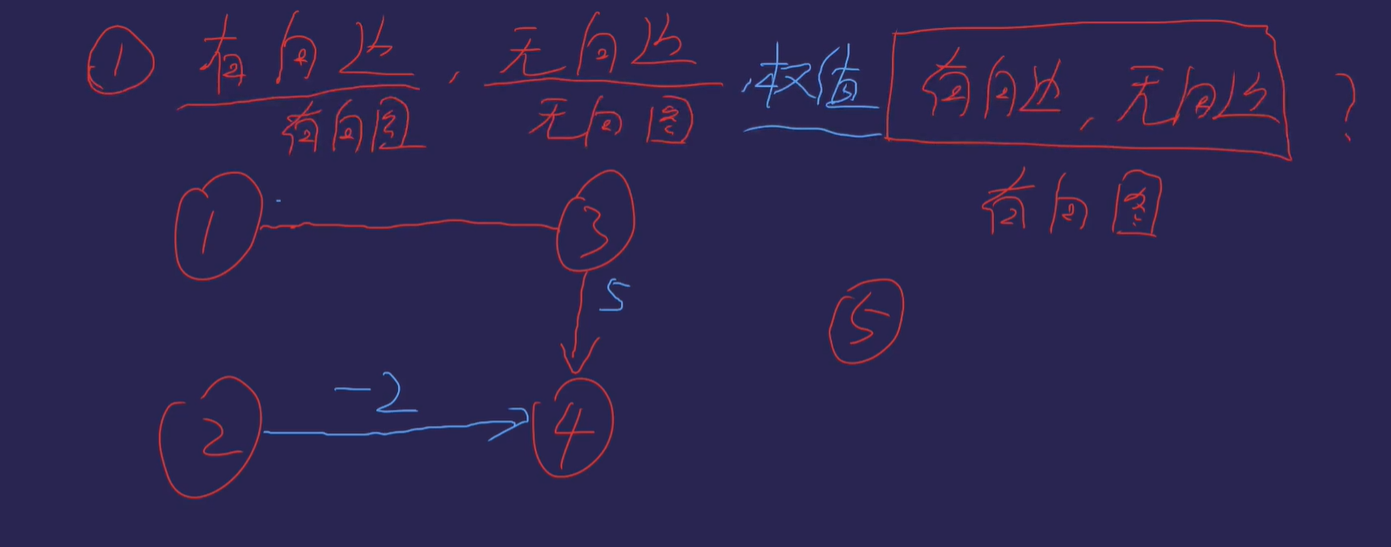 ① 有向边, 无向边, 权值 有向边, 无向边 ?
有向图 无向图
有向图
1 3
5
5
-2
2 4